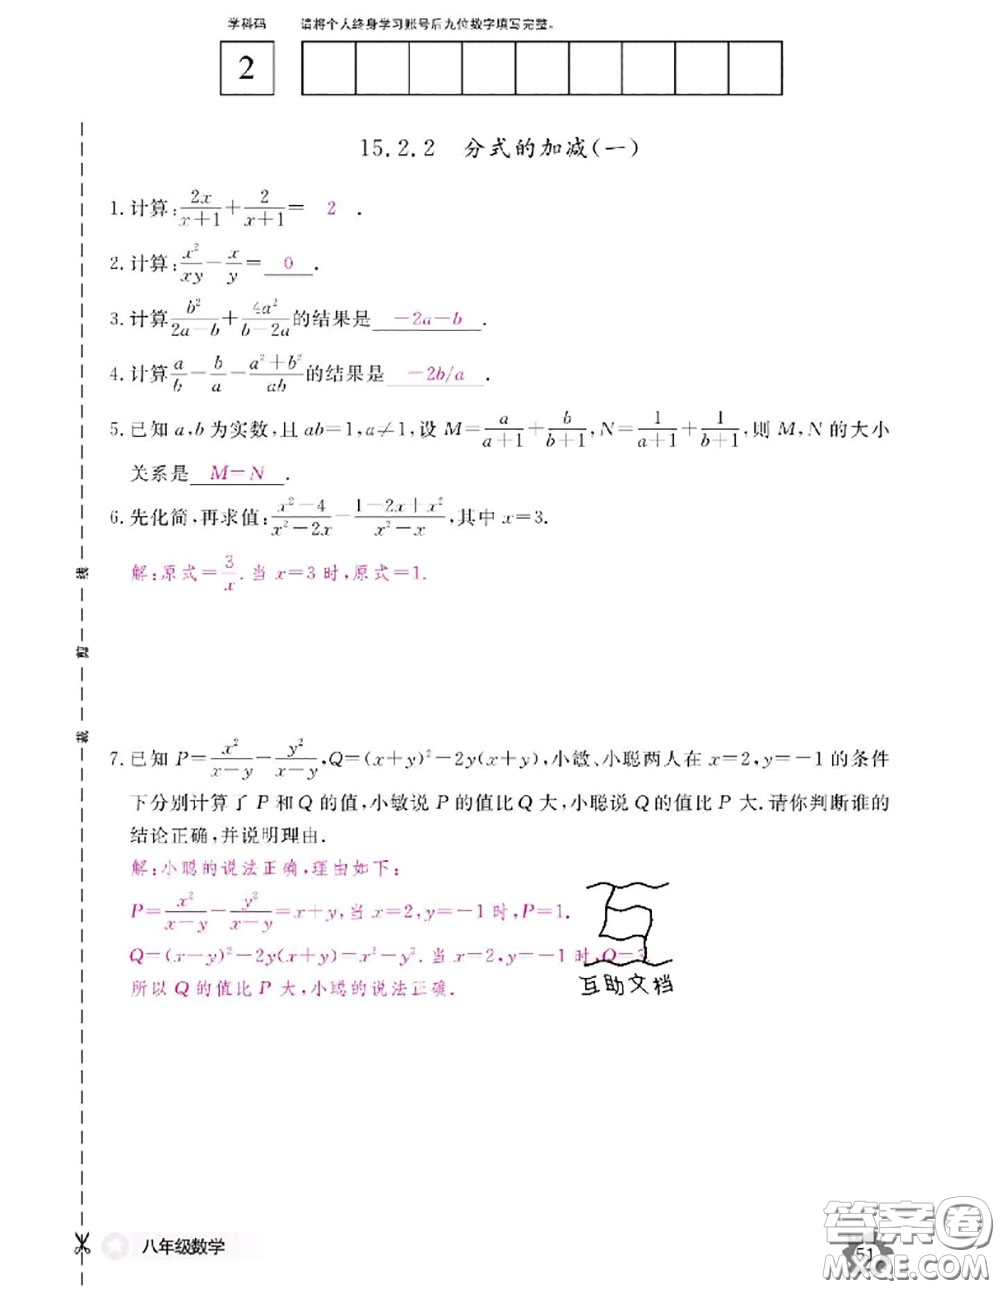 学科码 请将个人终身学习账号后九位数字填写完整。
2
15.2.2 分式的加减(一)
1.计算:\frac{2x}{x+1}+\frac{2}{x+1}= 2 .
2.计算:\frac{x^2}{xy}-\frac{x}{y}= 0 .
3.计算\frac{b^2}{2a-b}+\frac{4a^2}{b-2a}的结果是 -2a-b .
4.计算\frac{a}{b}-\frac{b}{a}-\frac{a^2+b^2}{ab}的结果是 -2b/a .
5.已知 a,b 为实数,且 ab=1,a≠1,设 M=\frac{a}{a+1}+\frac{b}{b+1},N=\frac{1}{a+1}+\frac{1}{b+1},则 M,N 的大小
关系是 M=N .
6.先化简,再求值:\frac{x^2-4}{x^2-2x}-\frac{1-2x+x^2}{x^2-x},其中 x=3.
解:原式=\frac{3}{x}.当 x=3 时,原式=1.
7.已知 P=\frac{x^2}{x-y}-\frac{y^2}{x-y},Q=(x+y)^2-2y(x+y),小敏、小聪两人在 x=2,y=-1 的条件
下分别计算了 P 和 Q 的值,小敏说 P 的值比 Q 大,小聪说 Q 的值比 P 大.请你判断谁的
结论正确,并说明理由.
解:小聪的说法正确,理由如下:
P=\frac{x^2}{x-y}-\frac{y^2}{x-y}=x+y,当 x=2,y=-1 时,P=1.
Q=(x-y)^2-2y(x+y)=x^2-y^2.当 x=2,y=-1 时,Q=3
所以 Q 的值比 P 大,小聪的说法正确.
互助文档
线
剪
裁
八年级数学
51
答案圈
MXQE.COM